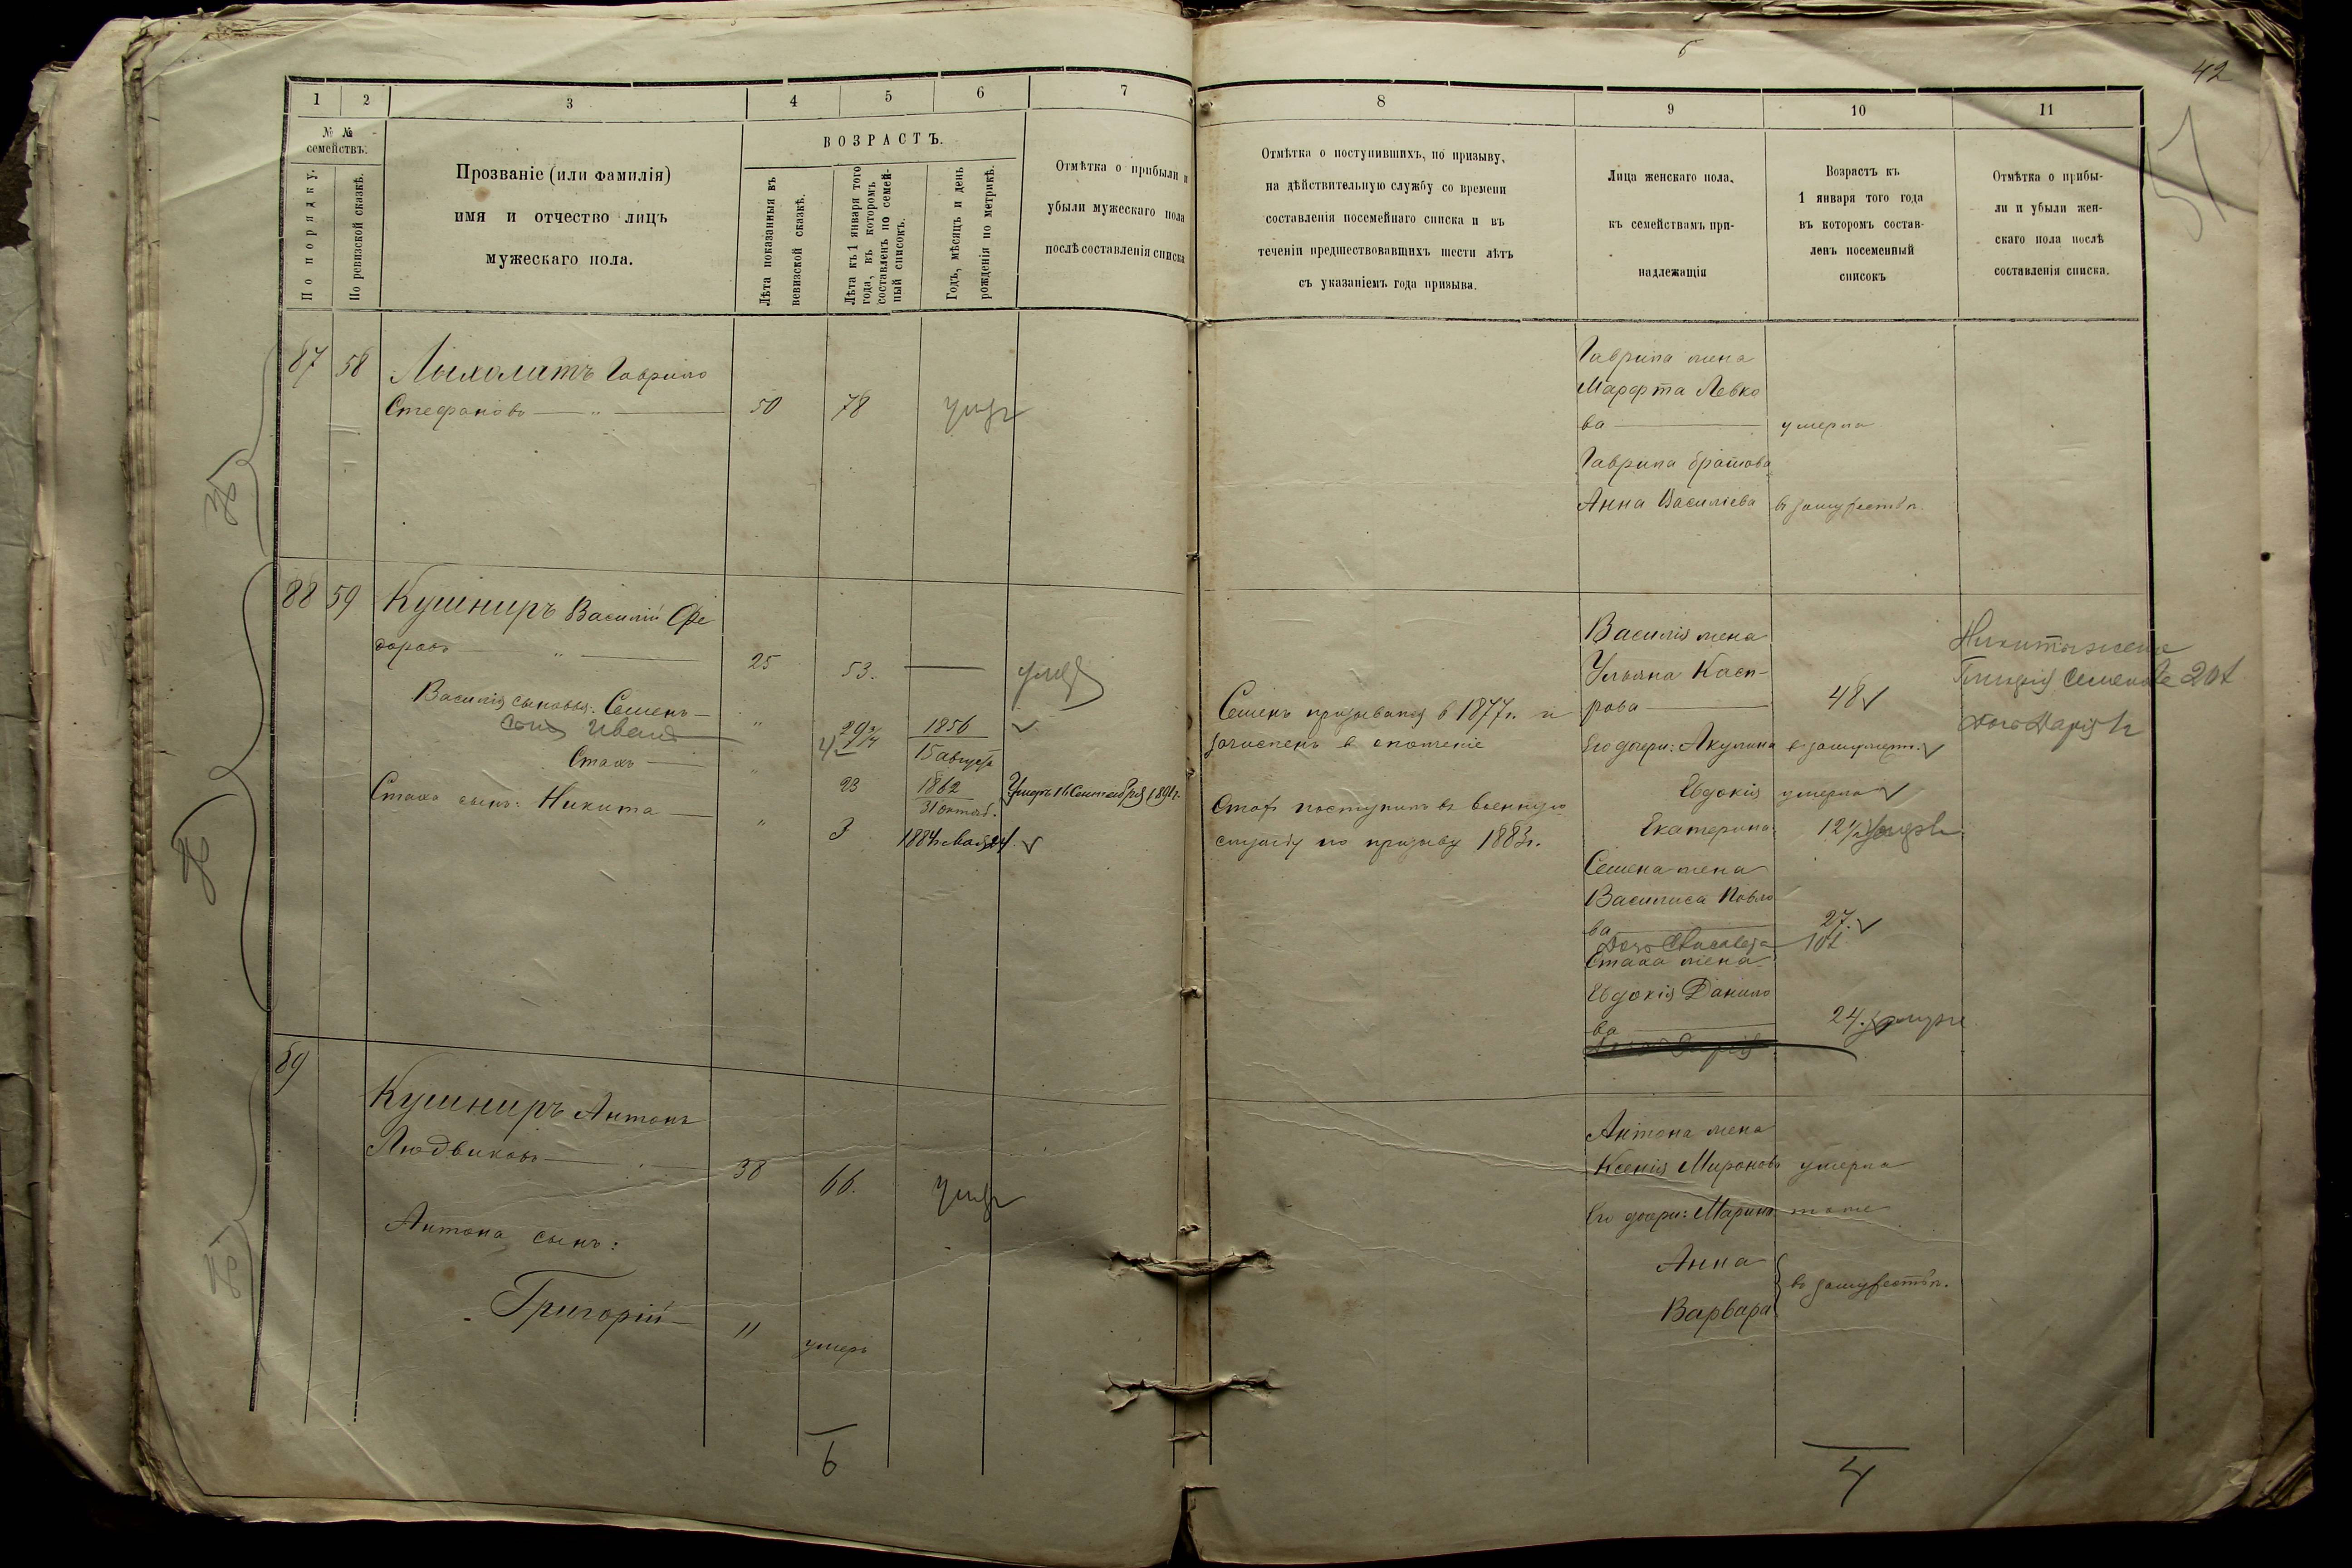 42
57
1 2 3 4 5 6 7
№ №
семействъ.
По порядку.
По ревизской сказкѣ.
Прозваніе (или фамилія)
имя и отчество лицъ
мужескаго пола.
ВОЗРАСТЪ.
Лѣта показанныя въ
ревизской сказкѣ.
Лѣта къ 1 января того
года, въ которомъ
составленъ по семей-
ный списокъ.
Годъ, мѣсяцъ и день
рожденія по метрикѣ.
Отмѣтка о прибыли и
убыли мужескаго пола
послѣ составленія списка
87 58 Лыхолатъ Гаврило
Стефановъ — " — 50 78 умеръ
88 59 Кушниръ Василій Фе
доровъ — " — 25 53. — умеръ
Василія сыновья: Семенъ — " 29 1856
15 августа
сынъ Иванъ
Стахъ — " 23 1862
31 октяб.
Умеръ 16 Сентября 1891 г.
Стаха сынъ: Никита — " 3 1884 Мая 24.
89
Кушниръ Антонъ
Людвиковъ — 38 66. умеръ
Антона сынъ:
Григорій — 11 умеръ
6
8 9 10 11
Отмѣтка о поступившихъ, по призыву,
на дѣйствительную службу со времени
составленія посемейнаго списка и въ
теченіи предшествовавшихъ шести лѣтъ
съ указаніемъ года призыва.
Лица женскаго пола,
къ семействамъ при-
надлежащія
Возрастъ къ
1 января того года
въ которомъ состав-
ленъ посеменный
списокъ
Отмѣтка о прибы-
ли и убыли жен-
скаго пола послѣ
составленія списка.
Гаврила жена
Марфта Левко
ва — умерла
Гаврила братова
Анна Василіева въ замужествѣ.
Василія жена
Ульяна Касп-
рова — 48
Его дочери: Акулина въ замужеств.
Евдокія умерла
Екатерина 12 1/2
Семена жена
Василиса Павло
ва — 27.
Стаха жена
Евдокія Данило
ва — 24.
Никиты жена
Семенова 20
Дочь Дарія
Семенъ призывался в 1877 г. и
зачисленъ в ополченіе
Стахъ поступилъ въ военную
службу по призыву 1883 г.
Антона жена
Ксенія Миронова умерла
Его дочери: Марина тоже
Анна
Варвара
въ замужествѣ.
4